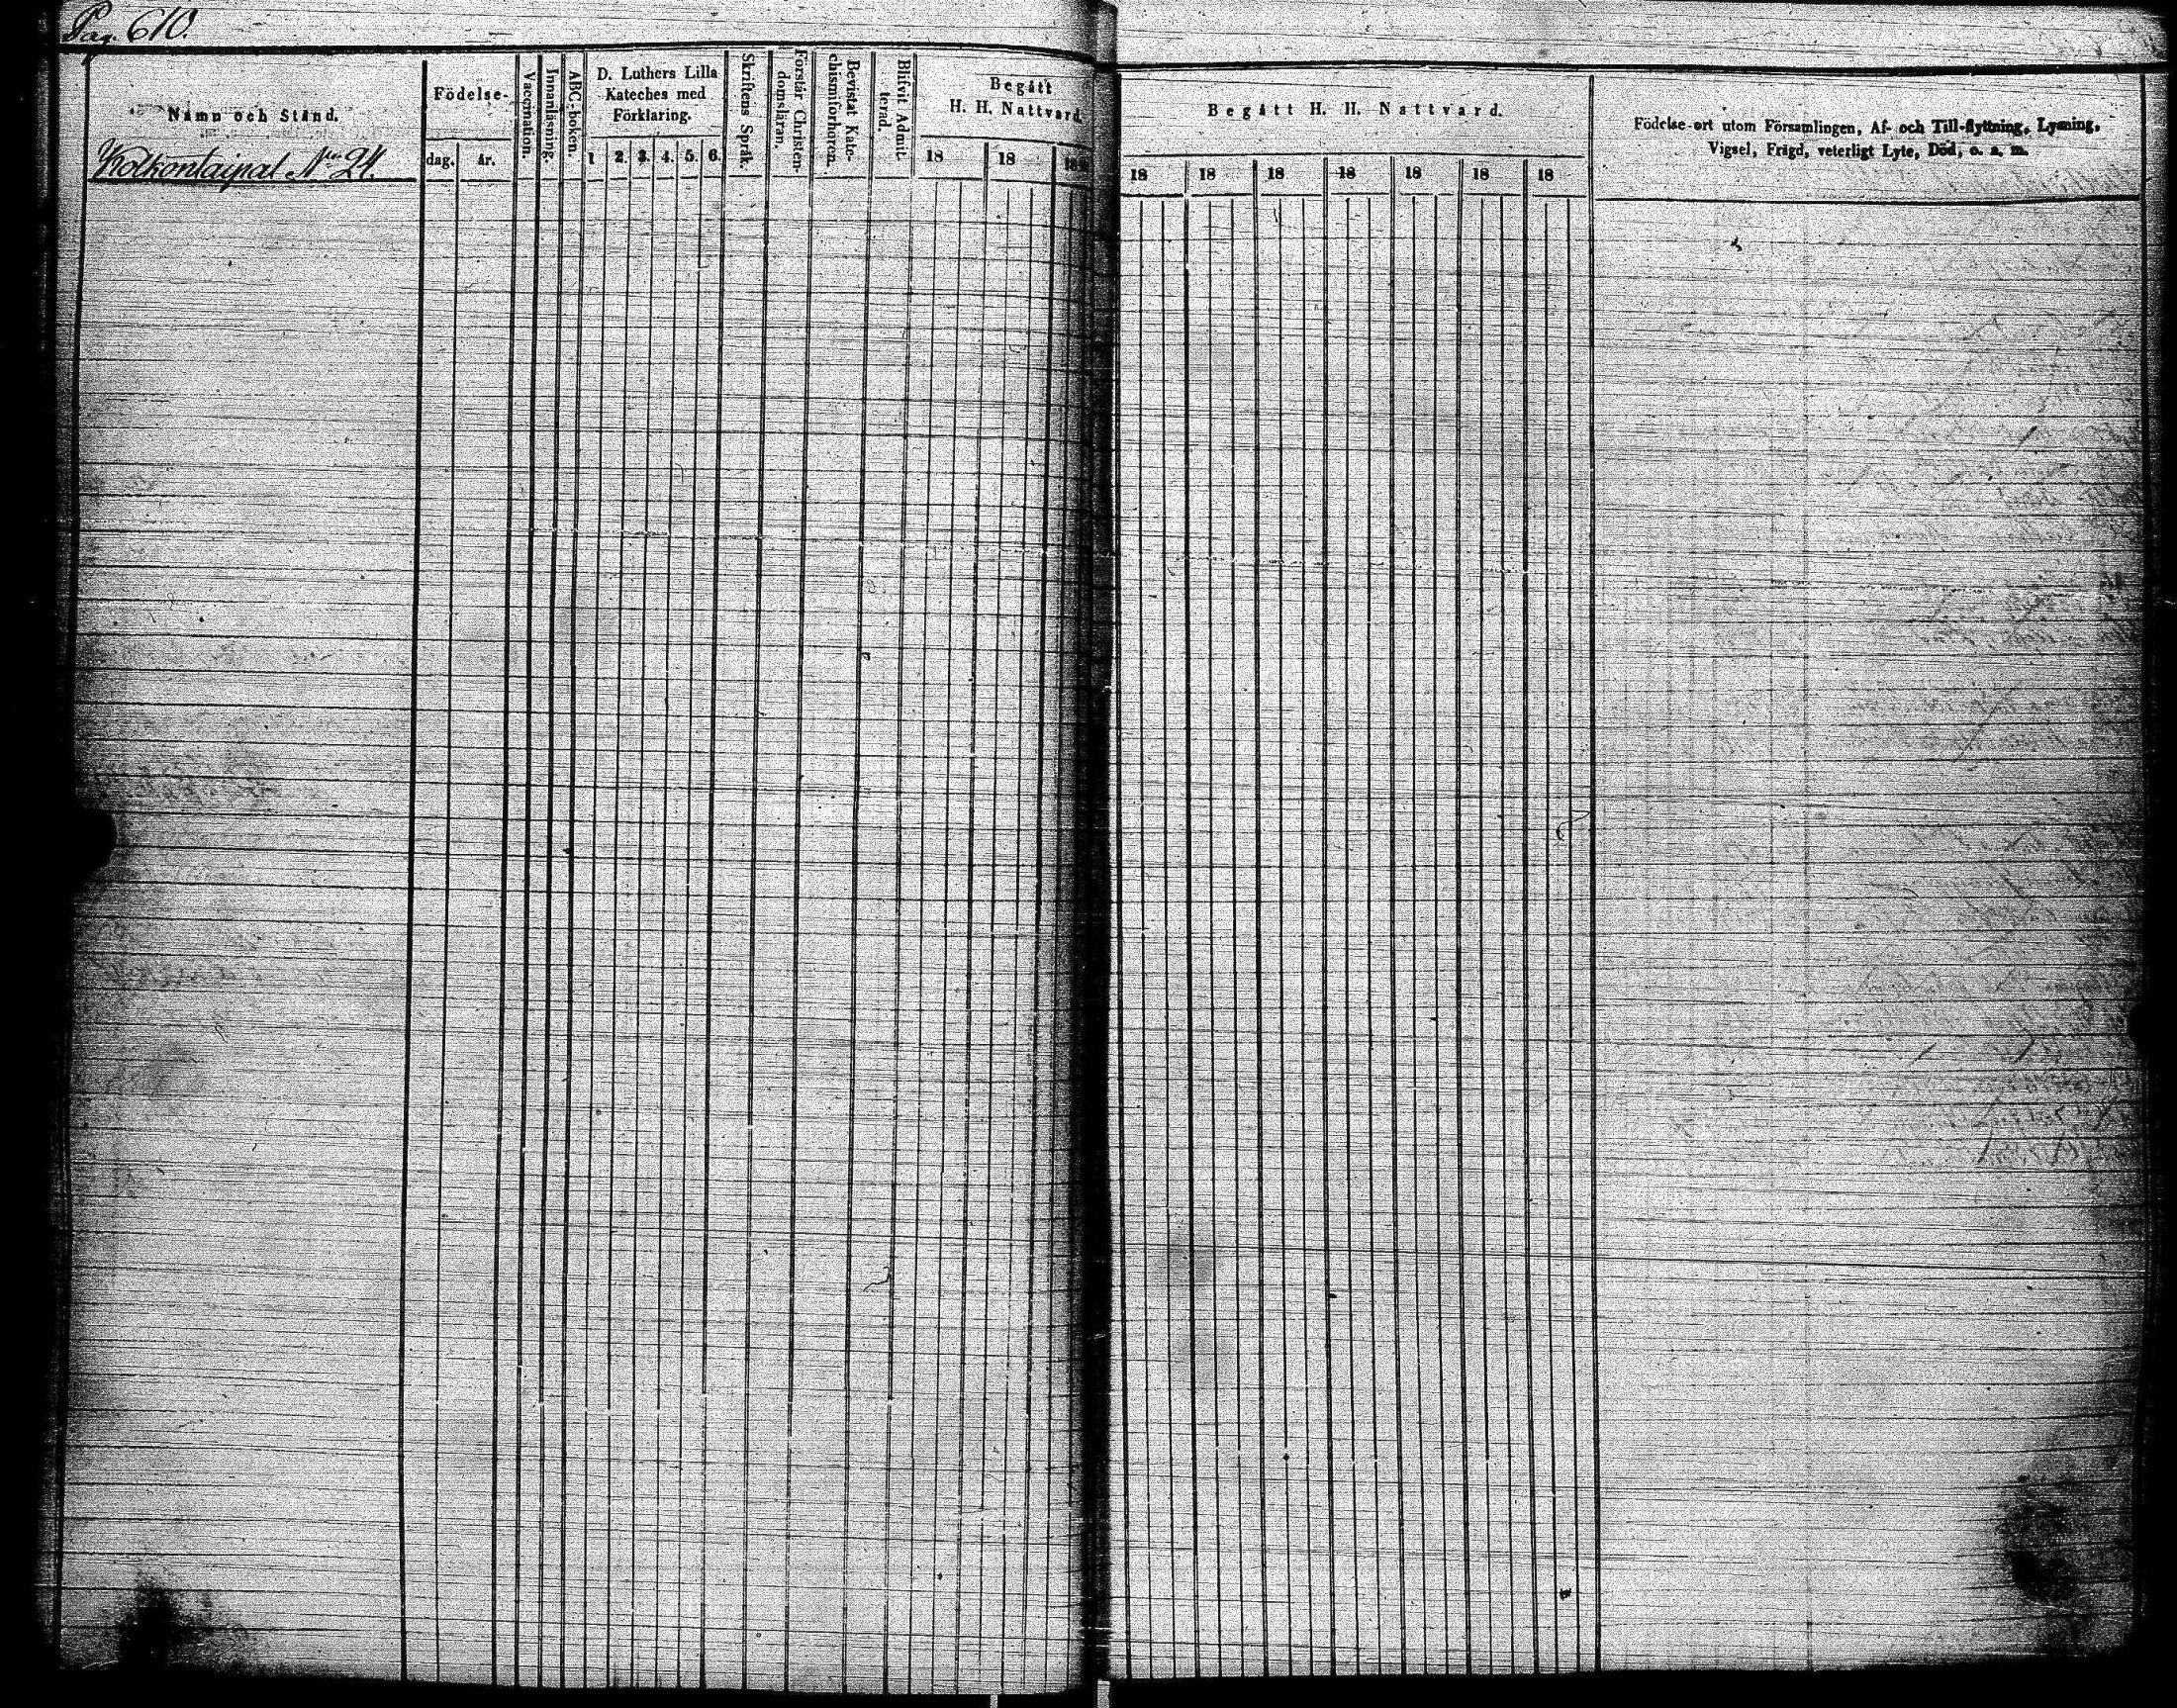 Pag. 610.
Namn och Stånd.
Kolkontaipal N:ro 24.
Födelse-
dag.
år.
Vaccination.
Innanläsning.
ABC-boken.
D. Luthers Lilla
Kateches med
Förklaring.
1 2. 3. 4. 5. 6.
Skriftens Språk.
Förstår Christen-
domsläran.
Bevistat Kate-
chismiförhören.
Blifvit Admit-
terad.
Begått
H. H. Nattvard.
18 18 18
Begått H. H. Nattvard.
18 18 18 18 18 18 18
Födelse-ort utom Församlingen, Af- och Till-flyttning, Lysning,
Vigsel, Frägd, veterligt Lyte, Död, o. s. m.